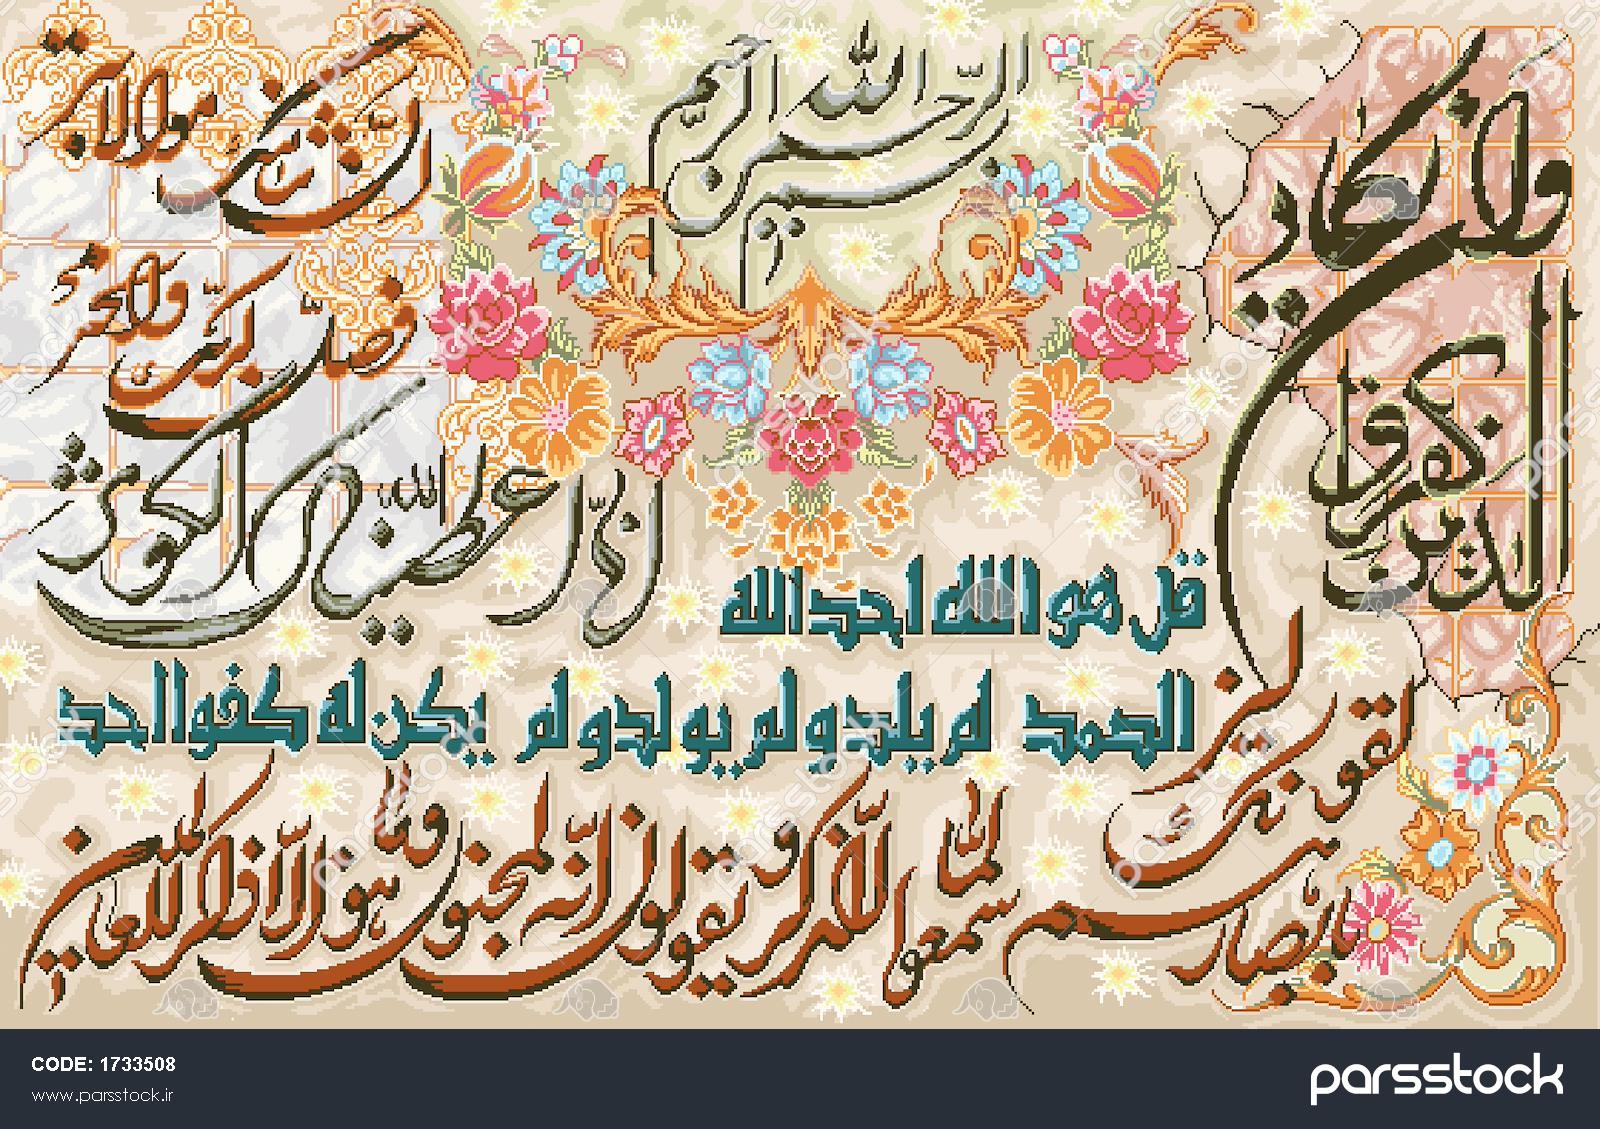 بسم الله الرحمن الرحیم
وان یکاد
الذین کفروا
لیزلقونک
بابصارهم
لما سمعوا الذکر و یقولون انه لمجنون وما هو الا ذکر للعالمین
انا اعطیناک الکوثر
فصل لربک وانحر
ان شانئک هو الابتر
الله
قل هو الله احد الله
الصمد لم یلد و لم یولد و لم یکن له کفوا احد
CODE: 1733508
www.parsstock.ir
parsstock